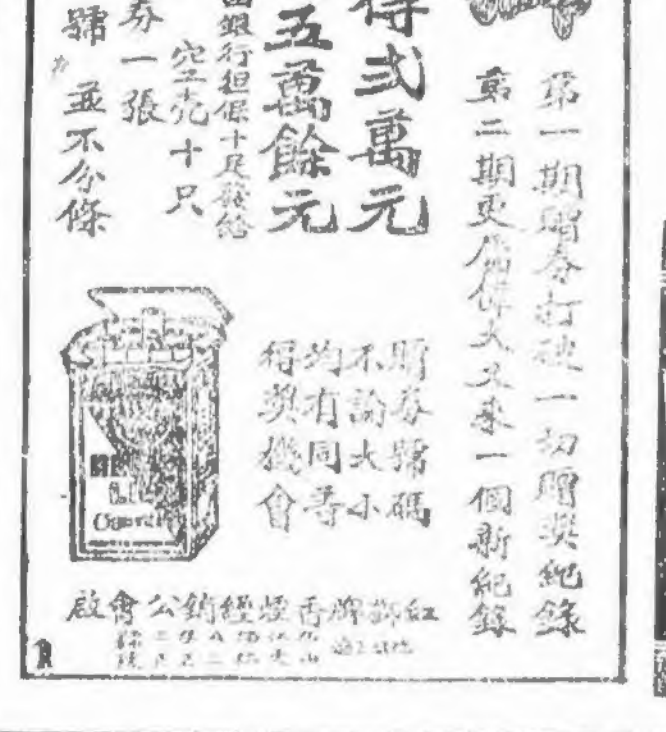 第一期贈券打破一切贈獎紀錄
第二期更屬偉大又來一個新紀錄
得弍萬元
五萬餘元
銀行担保十足發給
空壳十只
券一張
號並不分條
贈券號碼
不論大小
均有同等
得獎機會
紅獅牌香煙經銷公會啟